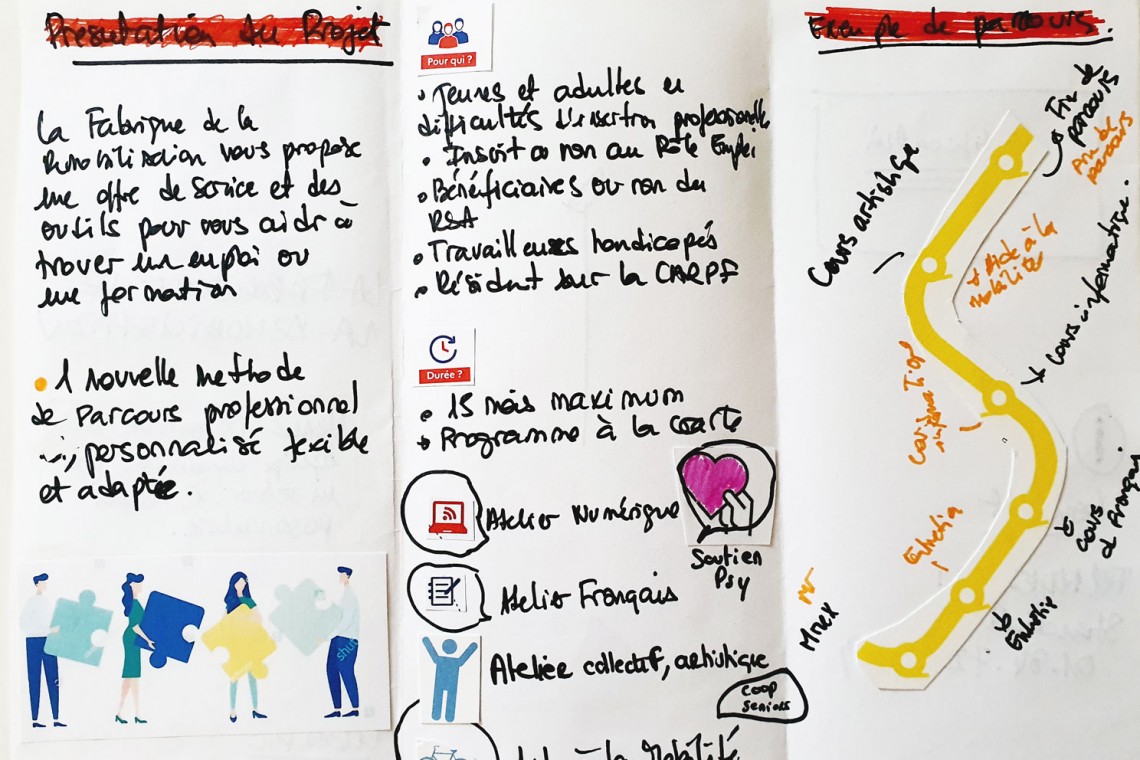 Présentation du Projet
La Fabrique de la
Remobilisation vous propose
une offre de service et des
outils pour vous aider à
trouver un emploi ou
une formation
• 1 nouvelle methode
de Parcours professionnel
personnalisé flexible
et adaptée.
shutt
Pour qui ?
• Jeunes et adultes en
difficultés d'insertion professionnelle
• Inscrit ou non au Pôle Emploi
• Bénéficiaires ou non du
RSA
• Travailleuses handicapés
• Résidant sur la CARPF
Durée ?
• 15 mois maximum
• Programme à la carte
Atelier Numérique
Soutien
Psy
Atelier Français
Ateliée collectif, artistique
COOP
Seniors
à la Mobilité
Exemple de parcours.
Fin de
parcours
Fin de
parcours
Cours artistique
+ Aide à la
Mobilité
Cours informatique.
Cours
d français